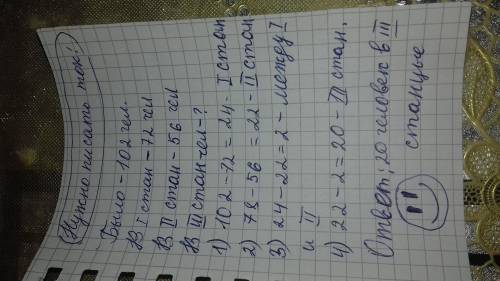 Нужно писать так:
Было - 102 чел.
В I стан - 72 чел
В II стан - 56 чел
В III стан чел - ?
1) 102 - 72 = 24 - I стан
2) 78 - 56 = 22 - II стан
3) 24 - 22 = 2 - между I
и II
4) 22 - 2 = 20 - III стан.
Ответ: 20 человек в III
станцые